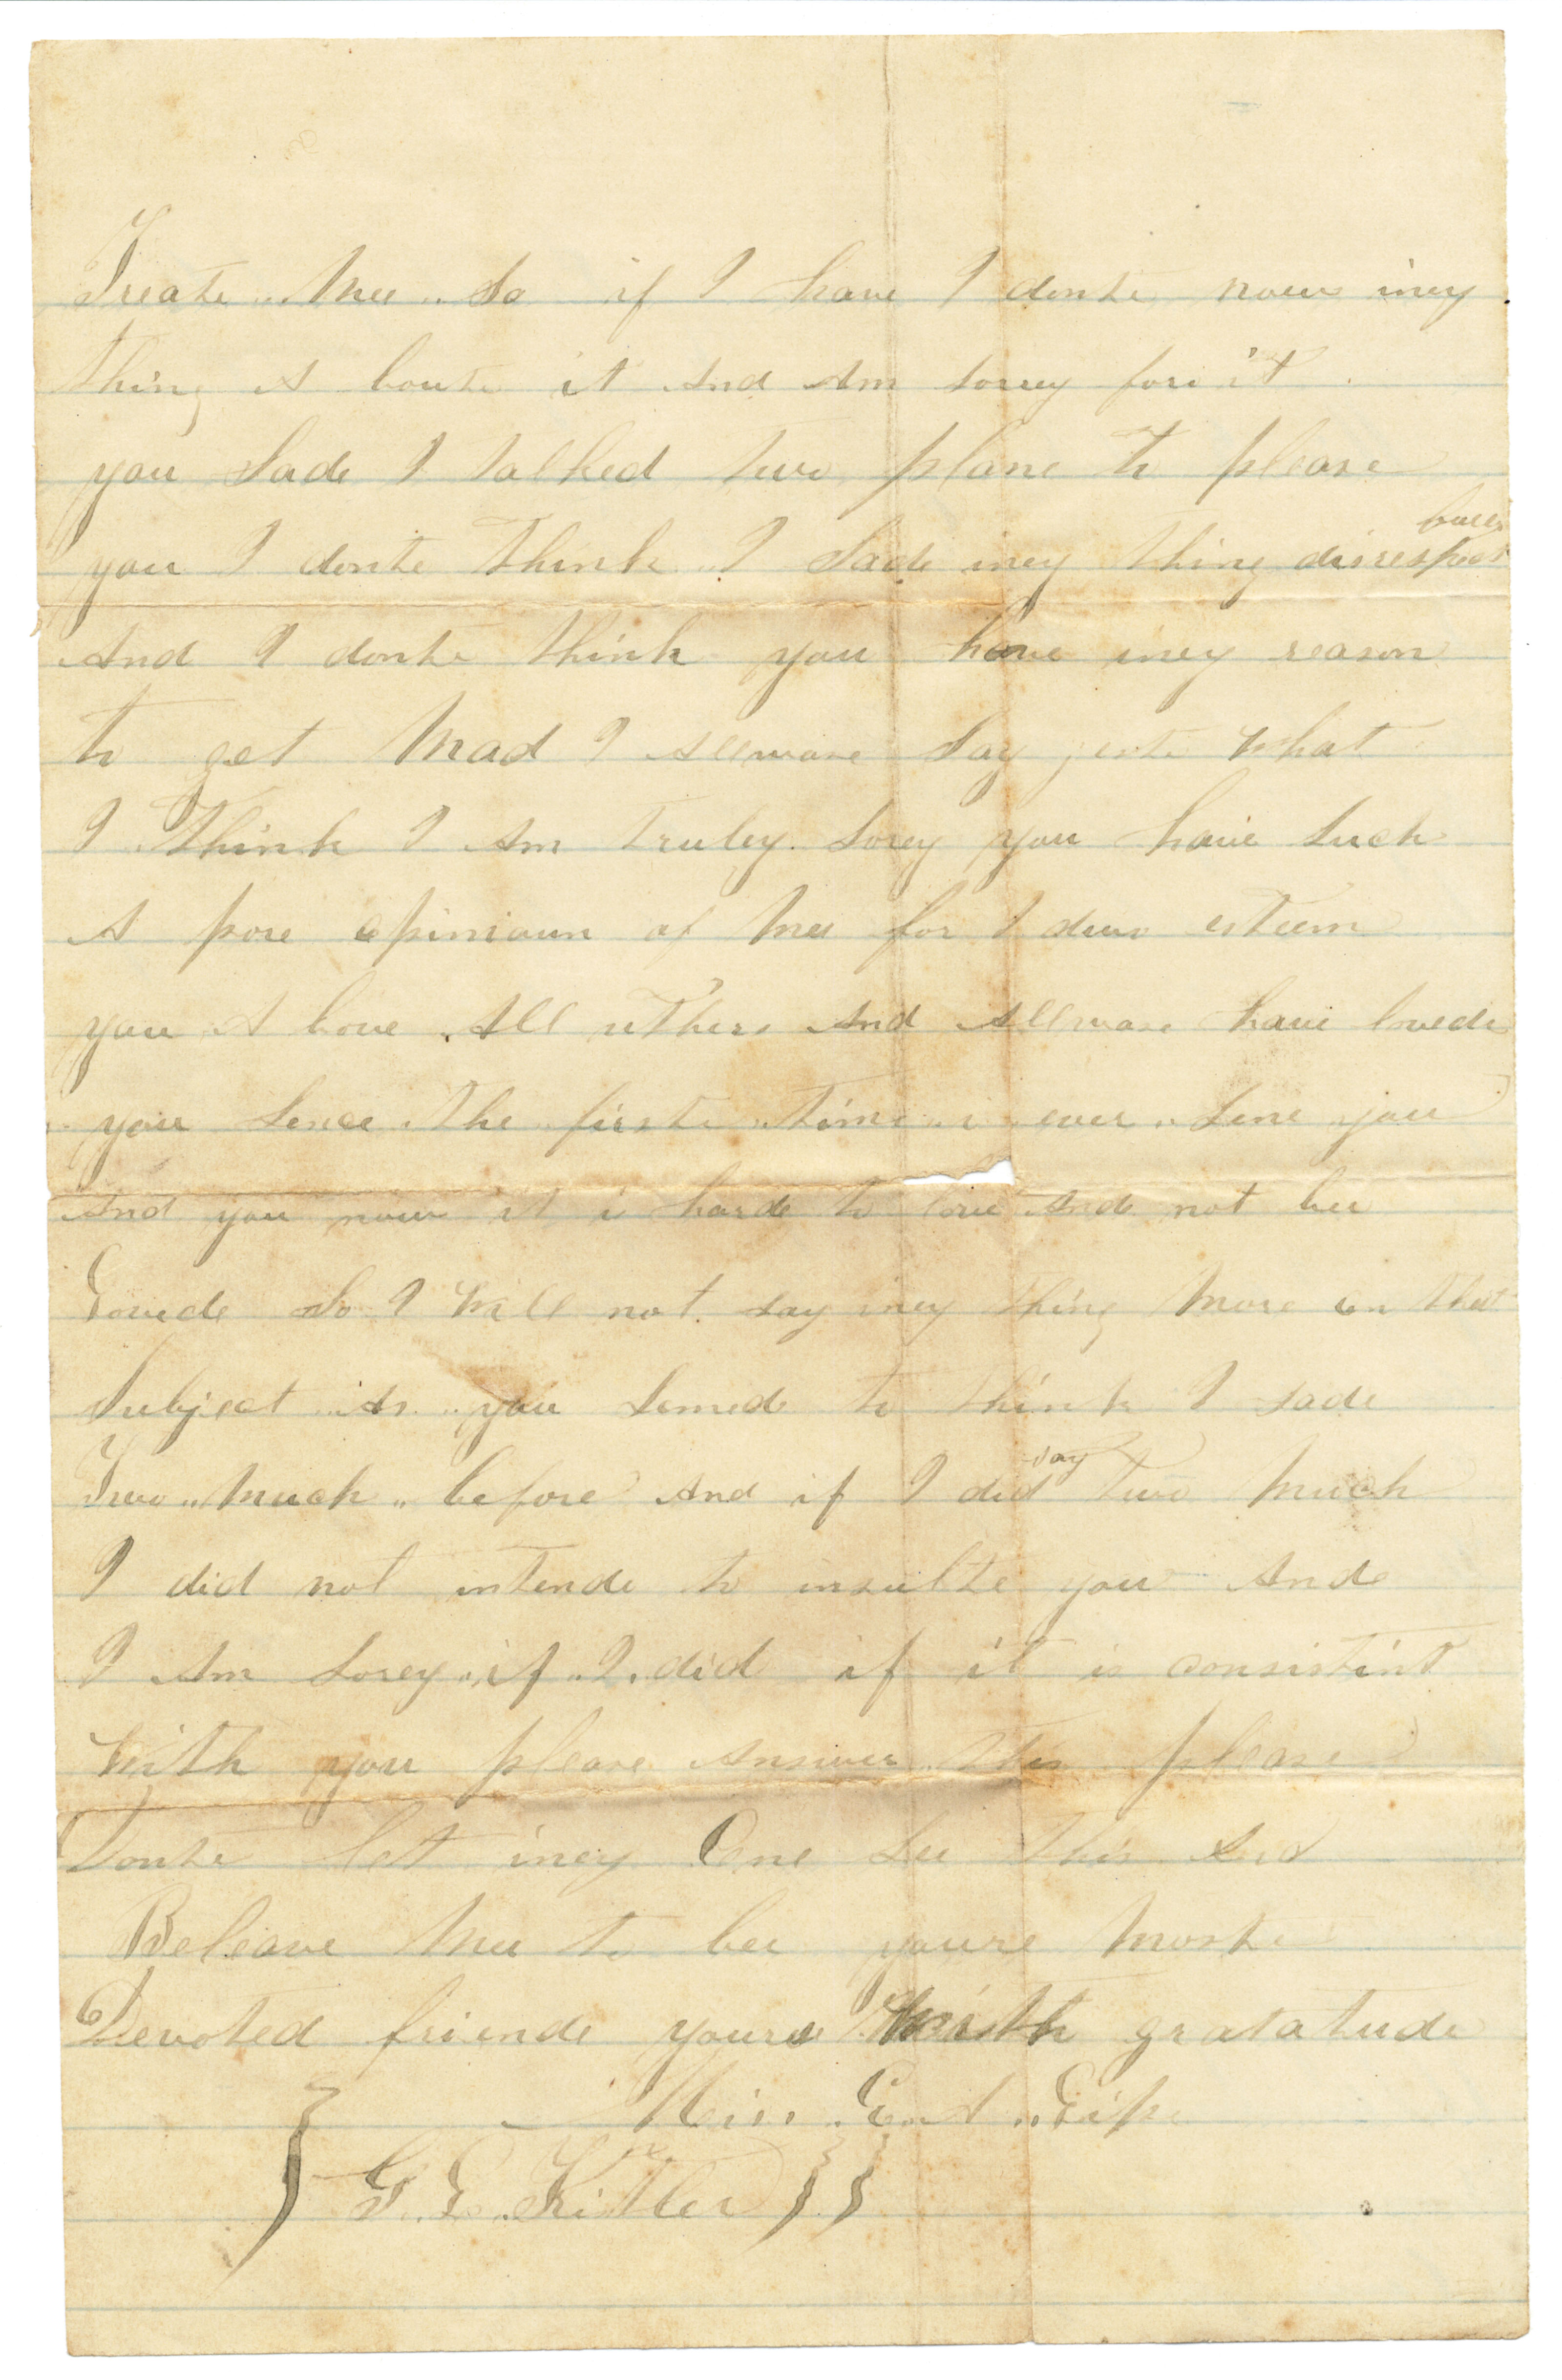 Treate mee So if I have I donte now iney
thing A boute it And Am sorrey fore it.
you Sade I talked two plane to please
you I donte think I Sade iney thing disrespect
bull
And I donte think you have iney reason
to get Mad I Allware Say juste what
I think I Am truley Sorey you have Such
A pore opinioun of Mee for I duw esteem
you A bove All uthers And Allware have lovede
you Sence the firste time i ever Sene you
And you now it is harde to love Ande not bee
Lovede So I Will not say iney thing More on that
Subject As you Semede to think I sade
Two Much before And if I did say two Much
I did not intende to insulte you Ande
I Am Sorey if I did if it is consistint
With you please Answer this please
Donte let iney One See this And
Beleave Mee to bee youre Moste
Devoted friende youre With gratatude
Miss E. A. Gipe
G. L. Kitler